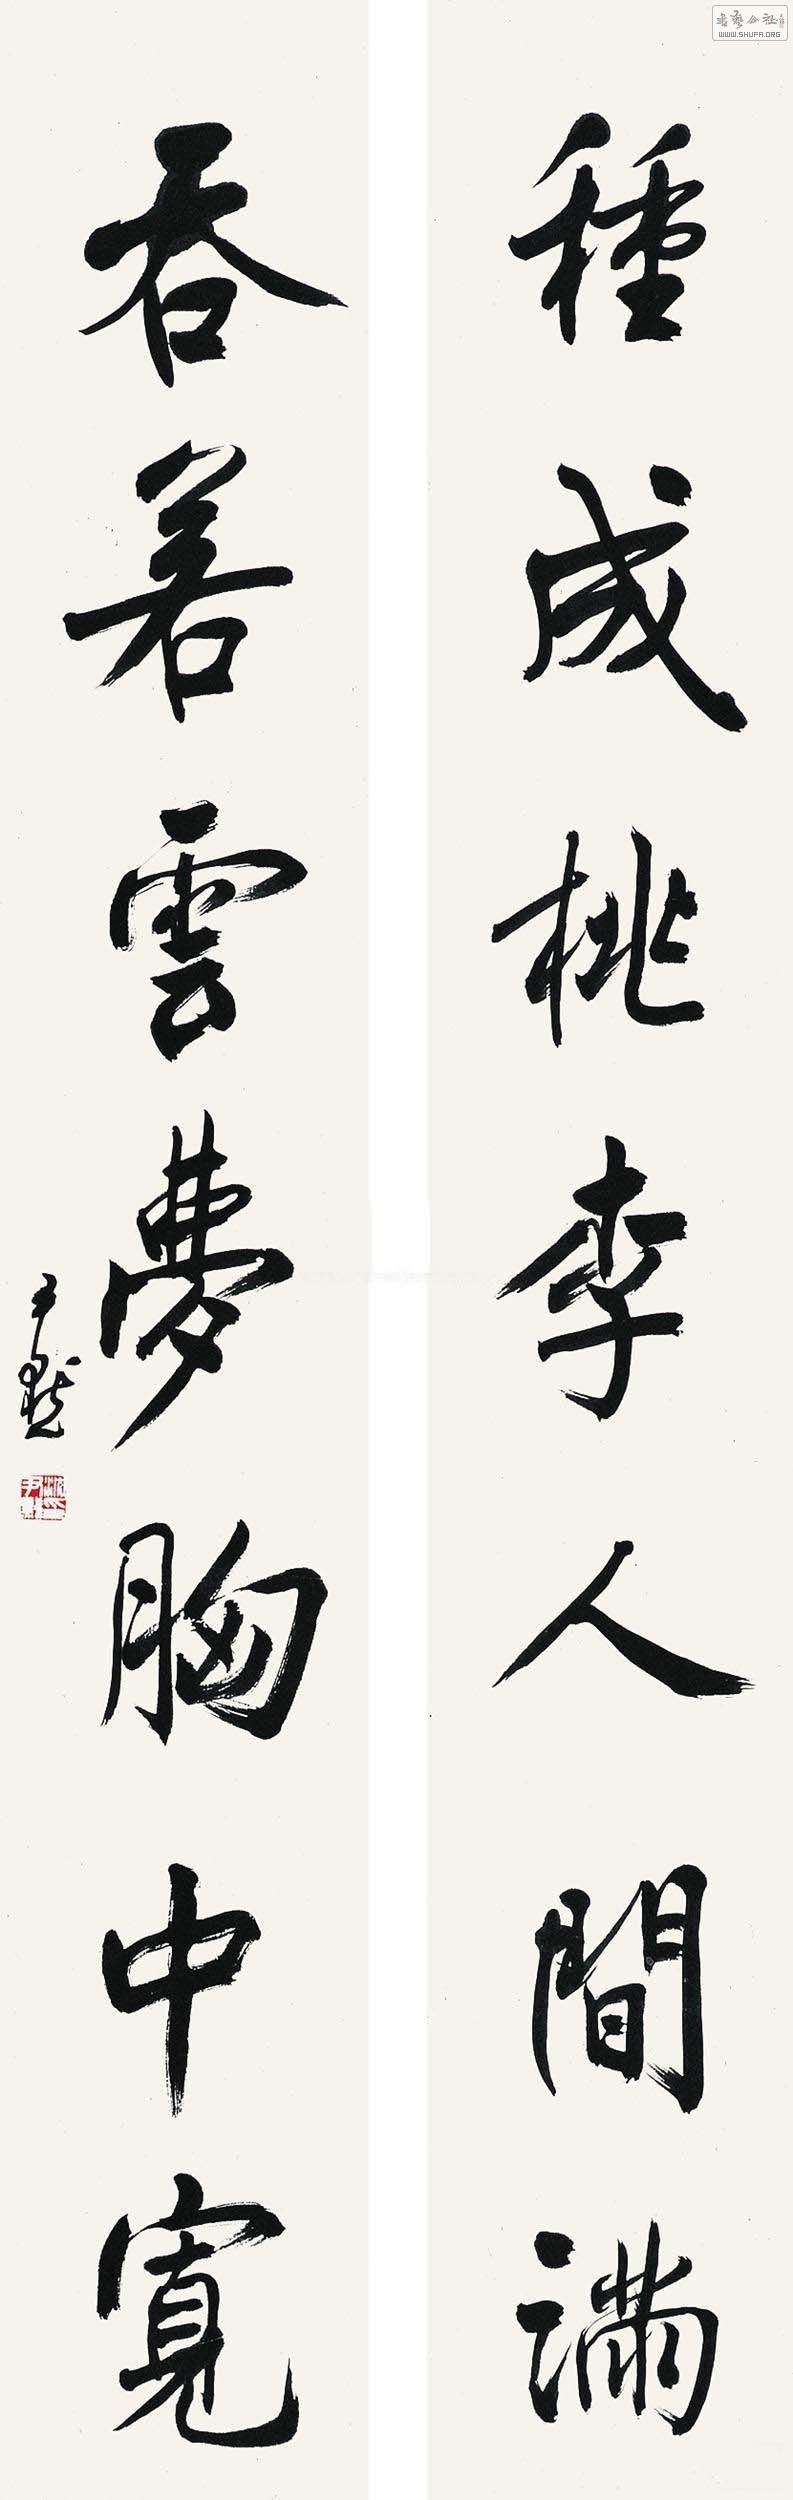 書藝公社
WWW.SHUFA.ORG
種成桃李人間滿
吞若雲夢胸中寬
尹默